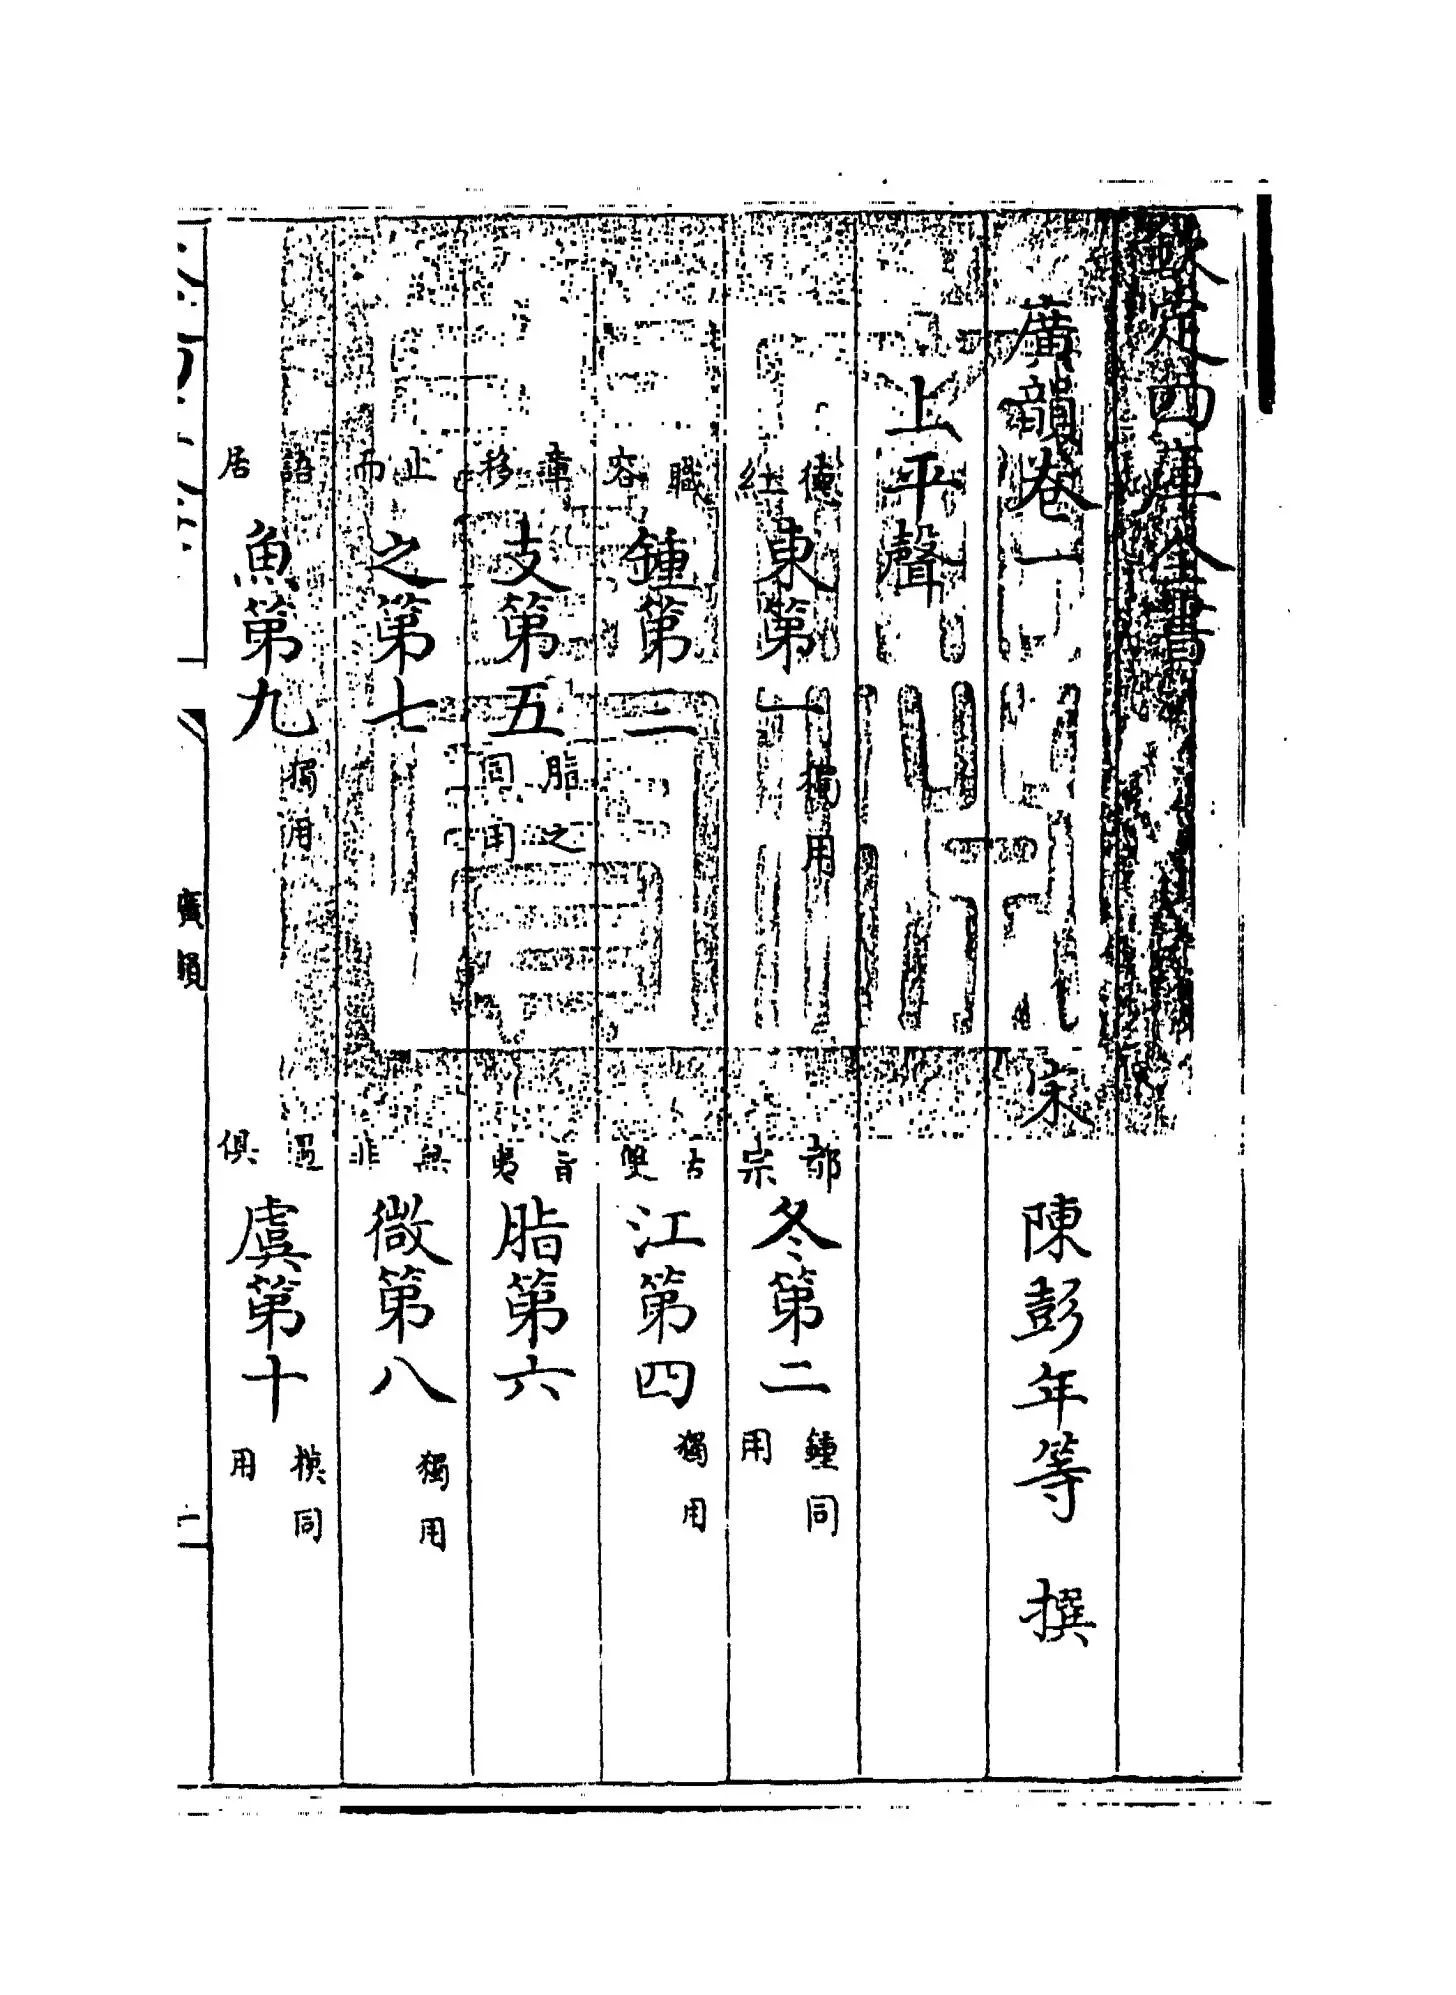 欽定四庫全書
廣韻卷一 宋 陳彭年等 撰
上平聲
德紅東第一獨用 都宗冬第二鍾同用
職容鍾第三 古雙江第四獨用
章移支第五脂之同用 旨夷脂第六
止而之第七 無非微第八獨用
語居魚第九獨用 遇俱虞第十模同用
廣韻